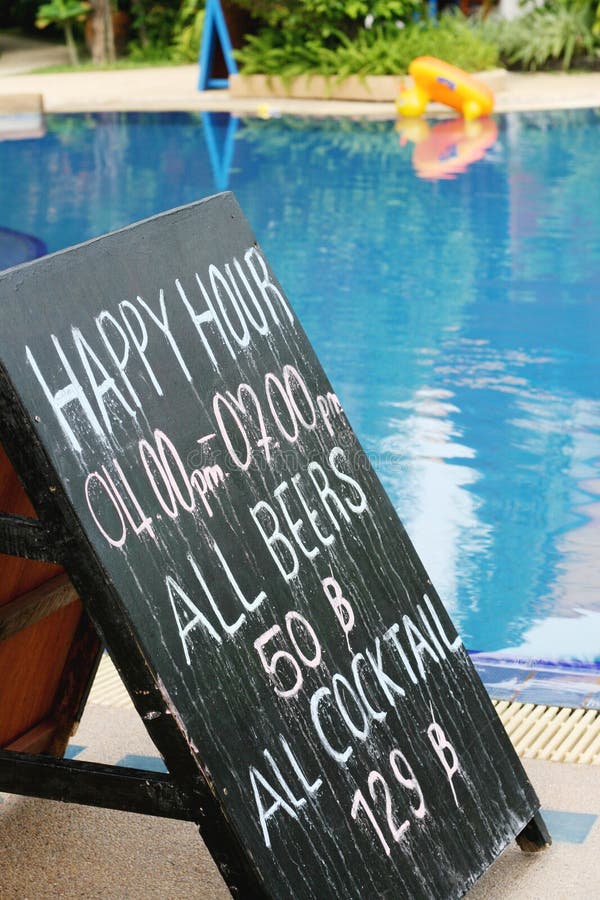 HAPPY HOUR
04.00pm-07.00pm
ALL BEERS
50 B
ALL COCKTAIL
129 B